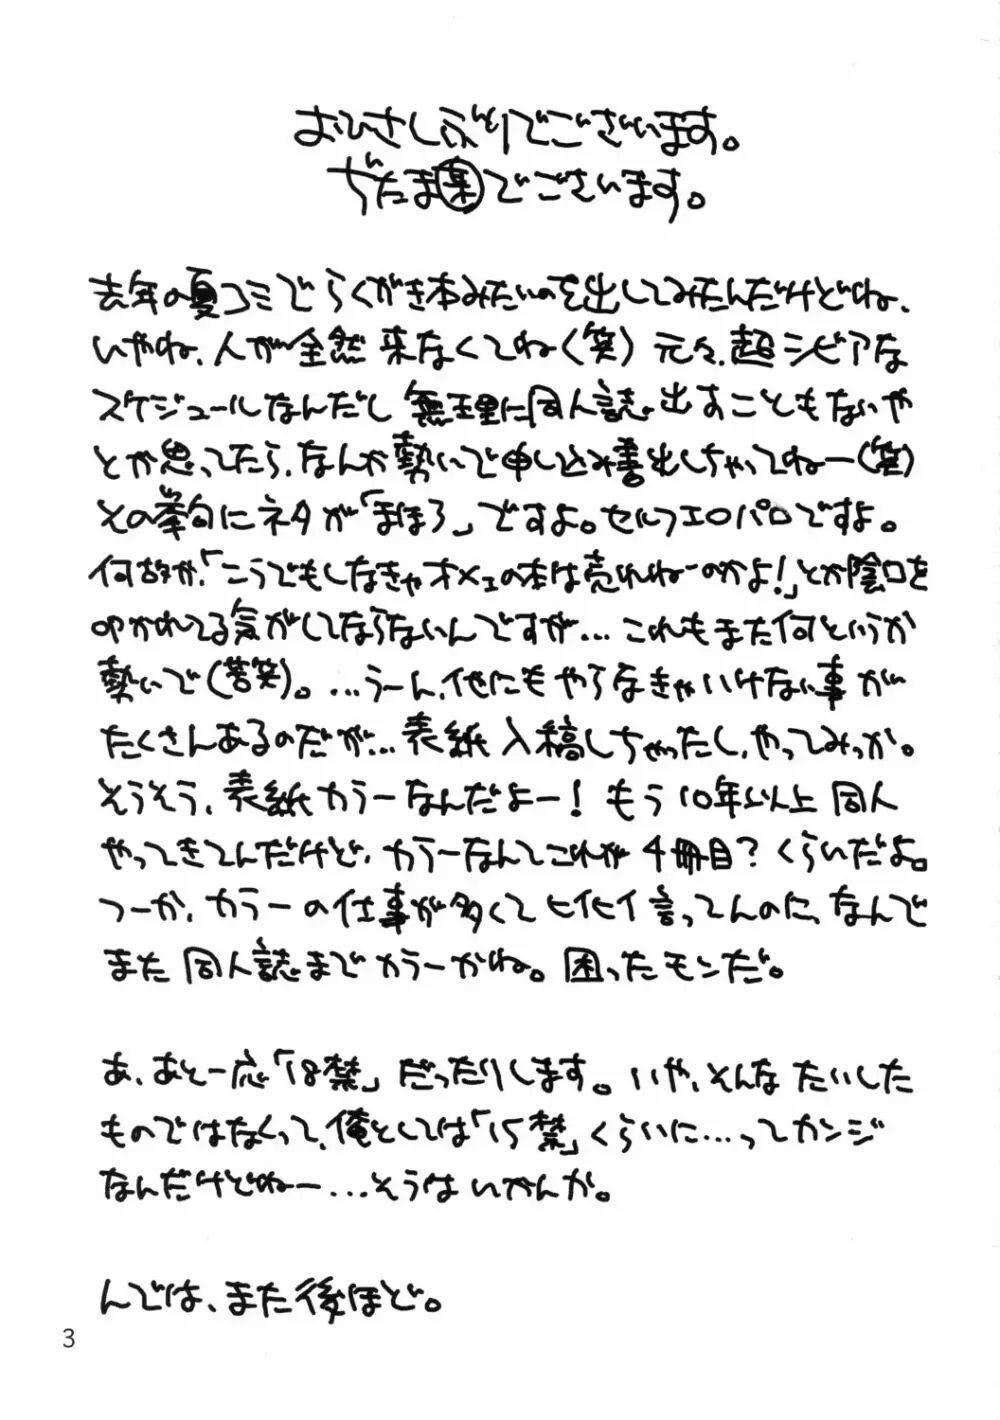 おひさしぶりでございます。
ぢたま某でございます。
去年の夏コミでらくがき本みたいのを出してみたんだけどね、
いやね、人が全然来なくてね(笑) 元々、超シビアな
スケジュールなんだし 無理に同人誌出すこともないや
とか思ってたら、なんか勢いで申し込み書出しちゃってねー(笑)
その挙句にネタが「まほろ」ですよ。セルフエロパロですよ。
何故か、「こうでもしなきゃオメェの本は売れねーのかよ!」とか陰口を
叩かれてる気がしてならないんですが...これもまた何というか
勢いで(苦笑)。...うーん、他にもやらなきゃいけない事が
たくさんあるのだが...表紙入稿しちゃったし、やってみっか。
そうそう、表紙カラーなんだよー! もう10年以上 同人
やってきてんだけど、カラーなんてこれが4冊目?くらいだよ。
つーか、カラーの仕事が多くてヒイヒイ言ってんのに、なんで
また 同人誌までカラーかね。困ったモンだ。
あ、あと一応「18禁」だったりします。いや、そんな たいした
ものではなくって、俺としては「15禁」くらいに...ってカンジ
なんだけどねー...そうはいかんか。
んでは、また後ほど。
3